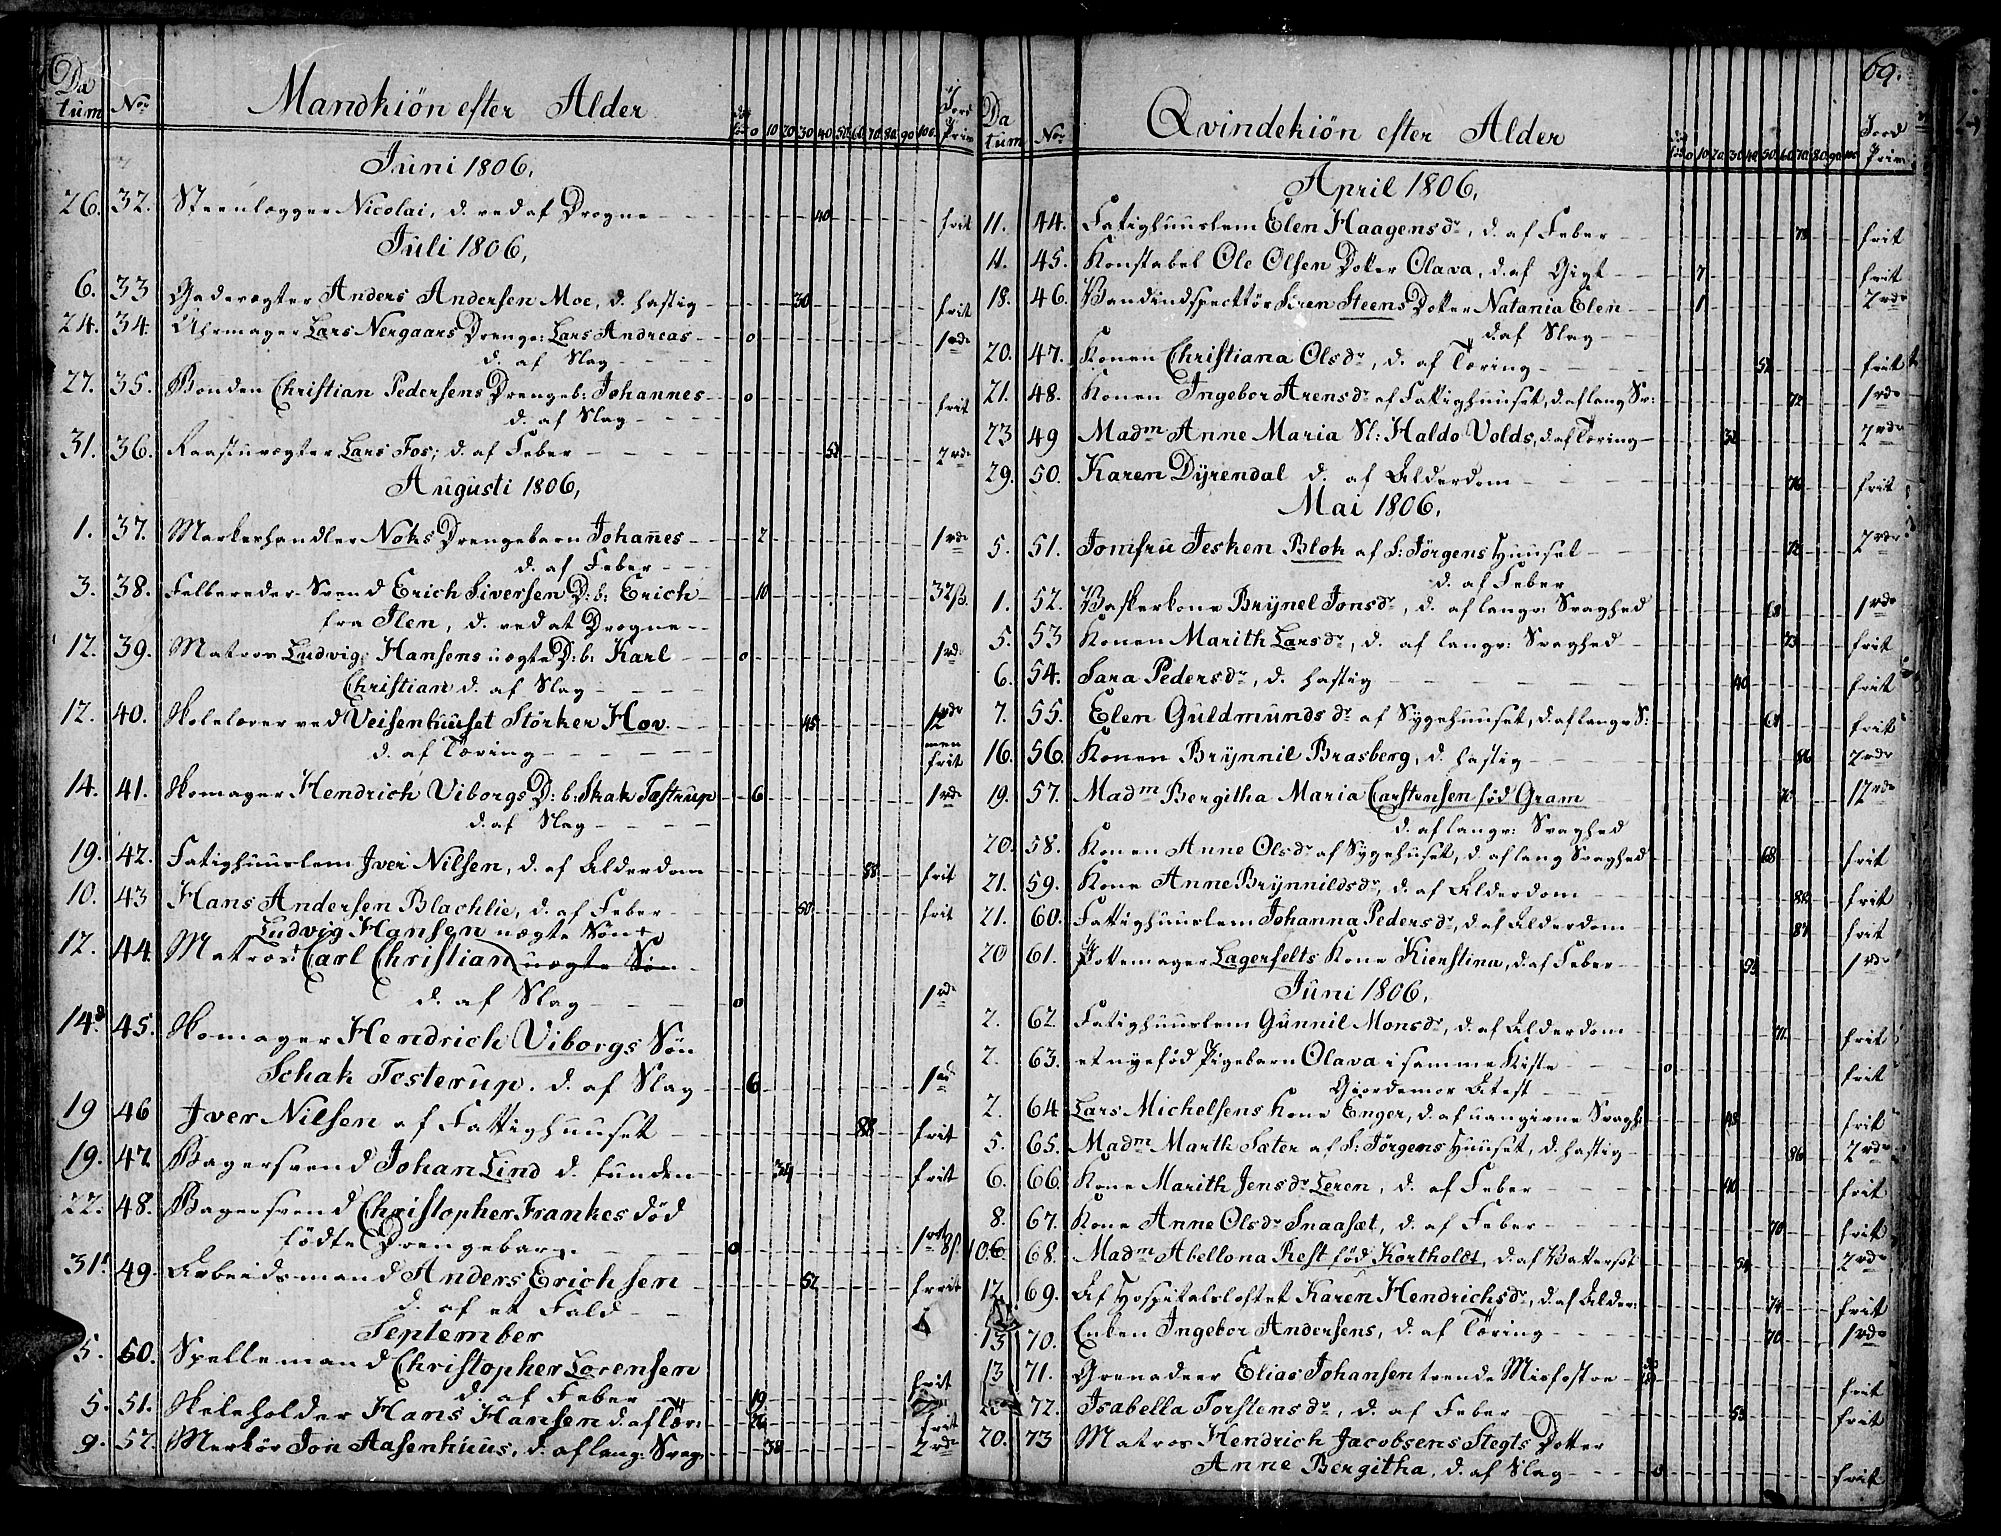 Da
tum No Mandkiön efter Alder dödföd 0 10 20 30 40 50 60 70 80 90 100 Jord Priis
Juni 1806,
26. 32. Steenlegger Nicolai, d. ved af Drogne 40 frit
Juli 1806,
6. 33 Gadevegter Anders Andersen Moe, d. hastig 30 frit
24. 34. Uhrmager Lars Nergaars Drenge: Lars Andreas 0 1 rd
d. af Slag
27. 35. Bonden Christian Pedersens Drengeb: Johannes 0 frit
d. af Slag
31. 36. Raastuvegter Lars Fos; d. af Feber 52 2 rd
Augusti 1806,
1. 37. Markerhandler Noks Drengebarn Johanes 2 1 rd
d. af Feber
3. 38. Felbereder Svend Erich Siversen D: b: Erich 10 32ß.
fra Ilen, d. ved at Drogne
12. 39. Matros Ludvig Hansens uegte D: b: Karl 0 1 rd
Christian d. af Slag
12. 40. Skolelærer ved Veisenhuuset Störker Hov 45 12 rd
d. af Tæring men frit
14. 41. Skomager Hendrich Viborgs D: b: Skak Tastrup 6 1 rd
d. af Slag
19. 42. Fatighuuslem Iver Nilsen, d. af Alderdom 88 frit
10. 43 Hans Andersen Blachlie, d. af Feber 50 frit
Ludvig Hansen uegte Sön
12. 44. Matros Carl Christian uegte Sön
d. af Slag 0 1 rd
14. 45. Skomager Hendrich Viborgs Sön
Schak Testerup. d. af Slag 6 1 rd
19 46 Iver Nilsen af Fattighuuset 88 frit
19. 47. Bagersvend Johan Lind d. funden 34 frit
22. 48. Bagersvend Christopher Frankes död
födte Drengebarn 0
31. 49. Arbeidsmand Anders Erichsen 52 frit
d. af et Fald
September
5. 50. Spellemand Christopher Lorensen
d. af Feber 19 frit
5. 51. Skileholder Hans Hansen d. af Tær: frit
9. 52. Merkör Jon Aasenhuus, d. af lang: Svag 38 2 rd
69.
Da
tum No Qvindekiön efter Alder dödföd 0 10 20 30 40 50 60 70 80 90 100 Jord Priis
April 1806,
11. 44. Fatighuuslem Elen Haagensdr, d. af Feber 78 frit
11. 45. Konstabel Ole Olsen Doter Olava, d. af Gigt 7 frit
18. 46. Vandindspecttör Siren Steens Dotter Natania Elen 1 2 rd
d. af Slag
20. 47. Konen Christiana Olsdr, d. af Tæring 52 frit
21. 48. Konen Ingebor Arensdr af Fattighuuset, d. af lang Sv: 72 1 rd
23 49 Madm Anne Maria Sl: Haldo Volds, d. af Tæring 32 2 rd
29. 50. Karen Dÿrendal d. af Alderdom 76 frit
Mai 1806,
5. 51. Jomfru Jesken Blok af S: Jörgens Huuset 72 2 rd
d. af Feber
1. 52. Vaskerkone Brÿnel Jonsdr, d. af langv: Svaghed 1 rd
5. 53 Konen Marith Larsdr, d. af langv: Svaghed 73 frit
6. 54. Sara Pedersdr, d. hastig 40 frit
7. 55. Elen Guldmundsdr af Sygehuuset, d. af langv S: frit
16. 56. Konen Brÿnnil Brasberg, d. hastig 86 2 rd
19. 57. Madm Bergitha Maria Carstensen föd Gram 12 rd
d. af langv: Svaghed
20. 58. Konen Anne Olsdr af Sygehuset, d. af lang Svaghed 68 frit
21. 59. Kone Anne Brÿnnildsdr, d. af Alderdom frit
21. 60. Fattighuuslem Johanna Pedersdr, d. af Alderdom 87 frit
20 61. Pottemager Lagerfelts Kone Kierstina, d. af Feber 1 rd
Juni 1806,
2. 62 Fatighuuslem Gunnil Monsdr, d. af Alderdom 71 frit
2. 63. et nyefød Pigebarn Olava i samme Kiste 0 frit
Giordemor Atest
2. 64 Lars Michelsens Kone Enger, d. af uangivne Svagh: 48 frit
5. 65. Madm Marth Sater af S: Jörgens Huuset, d. hastig 86 2 rd
6. 66. Kone Marith Jensdr Leren, d. af Feber 40 frit
8. 67. Kone Anne Olsdr Snaasæt, d. af Feber 70 frit
10. 68. Madm Abellona Rest föd Kortholdt, d. af Vattersot 54 2 rd
12. 69. Af Hospitalsloftet Karen Hendrichsdr, d. af Alder: 74 frit
13 70. Enken Ingebor Andersens, d. af Tæring 70 1 rd
13 71. Grenadeer Elias Johansen trende Misfostre frit
72. Isabella Torstensdr, d. af Feber 53 frit
20. 73 Matros Hendrich Jacobsens Stegts Dotter
Anne Bergitha, d. af Slag 0 frit